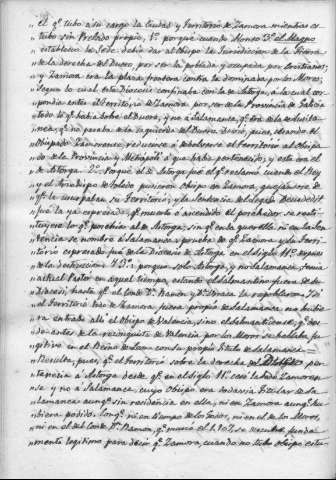 " el q.e tubo a su cargo la Ciudad y Territorio de Zamora mientras es-
" tubo sin Prelado propio, 1.º porque cuando Alonso 3.º el Magno
" estableció la Sede debia dar al Obispo la Jurisdiccion de la Tierra
" de la derecha del Duero, por ser la poblada y ocupada por Cristianos;
" y Zamora era la plaza frontera contra la dominada por los Moros;
" Segun lo cual esta Diocesis confinaba con la de Astorga, á la cual cor-
" pondia este territorio de Zamora, por ser de la Provincia de Galicia
" todo lo q.e habia sobre el Duero; y no á Salamanca, q.e era de la de Lusita-
" nea, q.e no pasaba de la izquierda del Duero.
Obispado Zamorense, reducirse ó devolverse el territorio al Obispa-
" do de la Provincia y Metropoli á que habia pertenecido; y este era el
" de Astorga. 2.º Porque el de Astorga fue el q.e reclamó cuando el Rey
" y el Arzobispo de Toledo pusieron Obispo en Zamora, quejandose de
" q.e le usurpaban su Territorio; y la Sentencia del Legado Deusdedit
" fué la ya espresada, q.e muerto ó ascendido el poseedor se resti-
" tuyese lo q.e poseia al de Astorga: sin q.e en la querella ni en la Sen-
" tencia se nombre á Salamanca: prueba de q.e Zamora y su Terri-
" torio espresado fué de la Diocesis de Astorga en el siglo 11.º despues
" de la destruccion. 3.º porque solo Astorga, y no Salamanca tenia
" actual Pastor en aquel tiempo, estando el Salamantino fuera de su
" Diocesis, hasta q.e el Conde D. Ramon y D.ª Urraca la repoblaron. Si
" el territorio de Zamora fuera propio de Salamanca no hubie-
" ra entrado alli el Obispo de Valencia, sino el Salmanticense, q.e des-
" de antes de la reconquista de Valencia por los Moros se hallaba fu-
" gitivo en el Reino de Leon con su propio titulo de Salamanca =
" Resulta, pues, q.e el territorio sobre la derecha del Duero per-
" tenecia á Astorga desde q.e en el siglo 11.º cesó la Sede Zamoren-
" se y no á Salamanca, cuyo Obispo era todavia titular de Sa-
" lamanca aunq.e sin residencia en ella, ni en Zamora aunq.e hu-
" biera podido. Conq.e ni en tiempo de los Godos, ni en el de los Moros,
" ni en el del Conde D.n Ramon, q.e murió el 1107, se encuentra funda-
" mento legitimo para decir q.e Zamora, cuando no tubo Obispo estu-